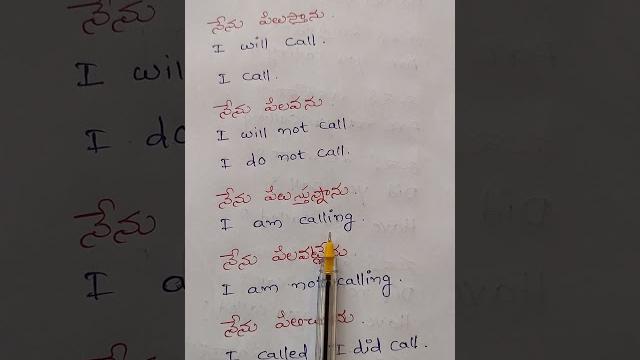 నేను పిలుస్తాను.
I will call.
I call.
నేను పిలవను.
I will not call.
I do not call.
నేను పిలుస్తున్నాను.
I am calling.
నేను పిలవట్లేను.
I am not calling.
నేను
I called I did call.